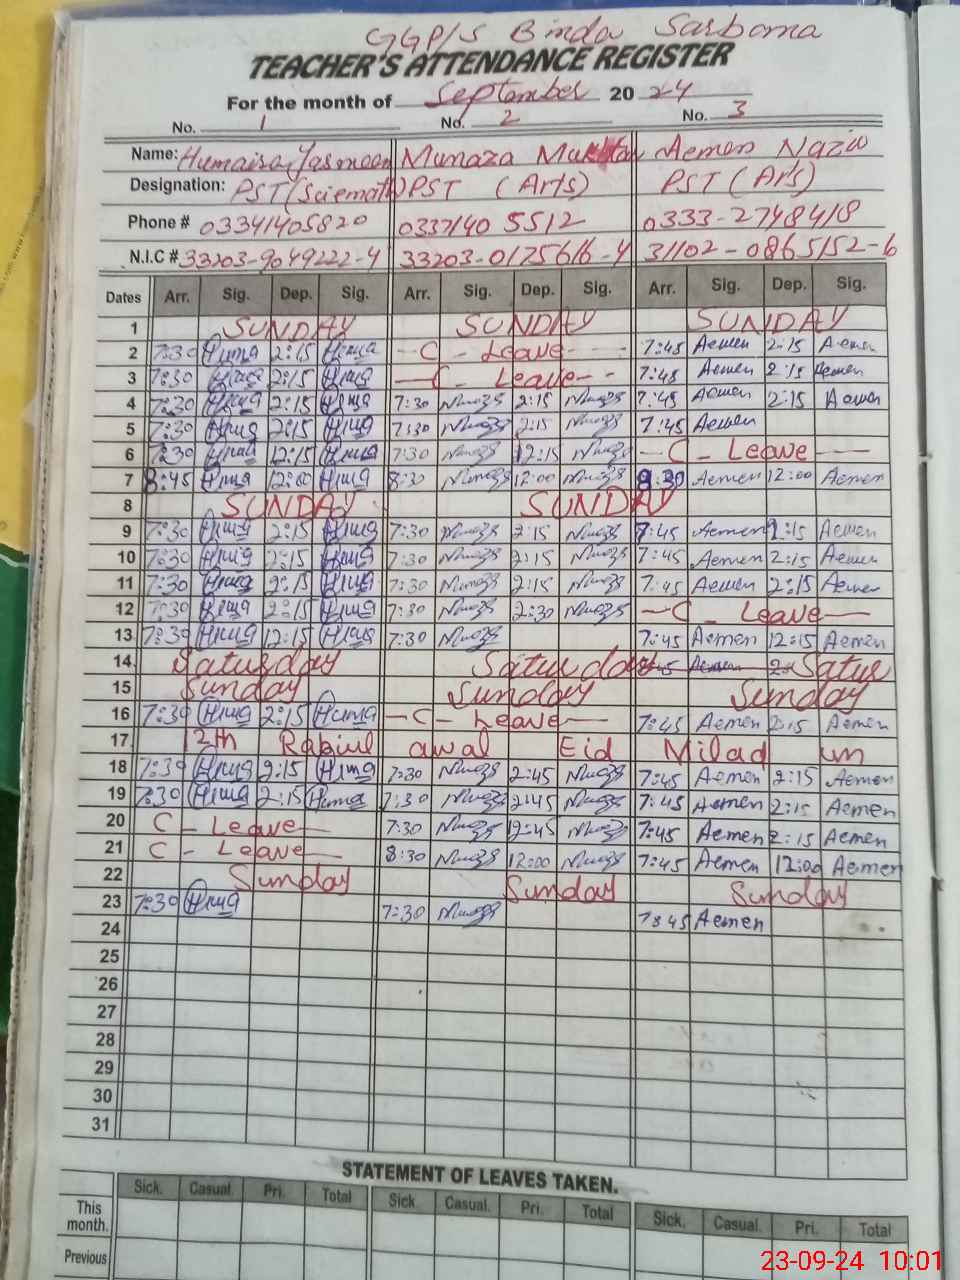 GGP/S Binda Sarbana
TEACHER'S ATTENDANCE REGISTER
For the month of September 20 24
No. 1 No. 2 No. 3
Name: Humaisa Yasmeen Munaza Mukhtar Aemen Nazir
Designation: PST (Sciemath) PST (Arts) PST (Arts)
Phone # 03341405820 0337140 5512 0333-2748418
N.I.C # 33203-9049222-4 33203-0175616-4 31102-0865152-6
Dates Arr. Sig. Dep. Sig. Arr. Sig. Dep. Sig. Arr. Sig. Dep. Sig.
1 SUNDAY SUNDAY SUNDAY
2 7:30 Huma 2:15 Huma -C- Leave- 7:45 Aemen 2:15 Aemen
3 7:30 Huma 2:15 Huma -C- Leave- 7:45 Aemen 2:15 Aemen
4 7:30 Huma 2:15 Huma 7:30 Munaza 2:15 Munaza 7:45 Aemen 2:15 Aemen
5 7:30 Huma 2:15 Huma 7:30 Munaza 2:15 Munaza 7:45 Aemen
6 7:30 Huma 12:15 Huma 7:30 Munaza 12:15 Munaza -C- Leave-
7 8:45 Huma 12:00 Huma 8:30 Munaza 12:00 Munaza 9:30 Aemen 12:00 Aemen
8 SUNDAY SUNDAY
9 7:30 Huma 2:15 Huma 7:30 Munaza 2:15 Munaza 7:45 Aemen 2:15 Aemen
10 7:30 Huma 2:15 Huma 7:30 Munaza 2:15 Munaza 7:45 Aemen 2:15 Aemen
11 7:30 Huma 2:15 Huma 7:30 Munaza 2:15 Munaza 7:45 Aemen 2:15 Aemen
12 7:30 Huma 2:15 Huma 7:30 Munaza 2:30 Munaza -C- Leave-
13 7:30 Huma 12:15 Huma 7:30 Munaza 7:45 Aemen 12:15 Aemen
14 Saturday Saturday Satur
15 Sunday Sunday Sunday
16 7:30 Huma 2:15 Huma -C- Leave- 7:45 Aemen 2:15 Aemen
17 12th Rabiul awal Eid Milad un
18 7:30 Huma 2:15 Huma 7:30 Munaza 2:45 Munaza 7:45 Aemen 2:15 Aemen
19 7:30 Huma 2:15 Huma 7:30 Munaza 2:45 Munaza 7:45 Aemen 2:15 Aemen
20 C - Leave- 7:30 Munaza 12:45 Munaza 7:45 Aemen 2:15 Aemen
21 C - Leave- 8:30 Munaza 12:00 Munaza 7:45 Aemen 12:00 Aemen
22 Sunday Sunday Sunday
23 7:30 Huma 7:30 Munaza 7:45 Aemen
24
25
26
27
28
29
30
31
STATEMENT OF LEAVES TAKEN.
Sick. Casual. Pri. Total Sick. Casual. Pri. Total Sick. Casual. Pri. Total
This month.
Previous
23-09-24 10:01